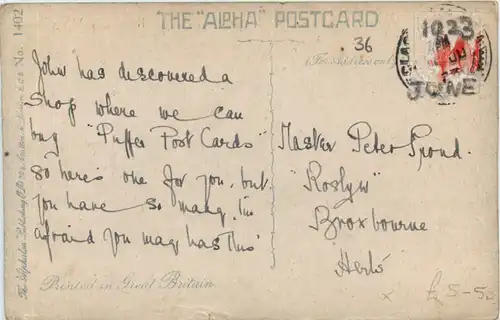 THE "ALPHA" POSTCARD
36
1923
JUNE
(For Address only)
No. 1402
John has discovered a
shop where we can
buy "Puffer Post Cards"
So here's one for you, but
you have so many, I'm
afraid you may has this
Master Peter
"Roslyn"
Broxbourne
Herts
Printed in Great Britain
x £ 5-50